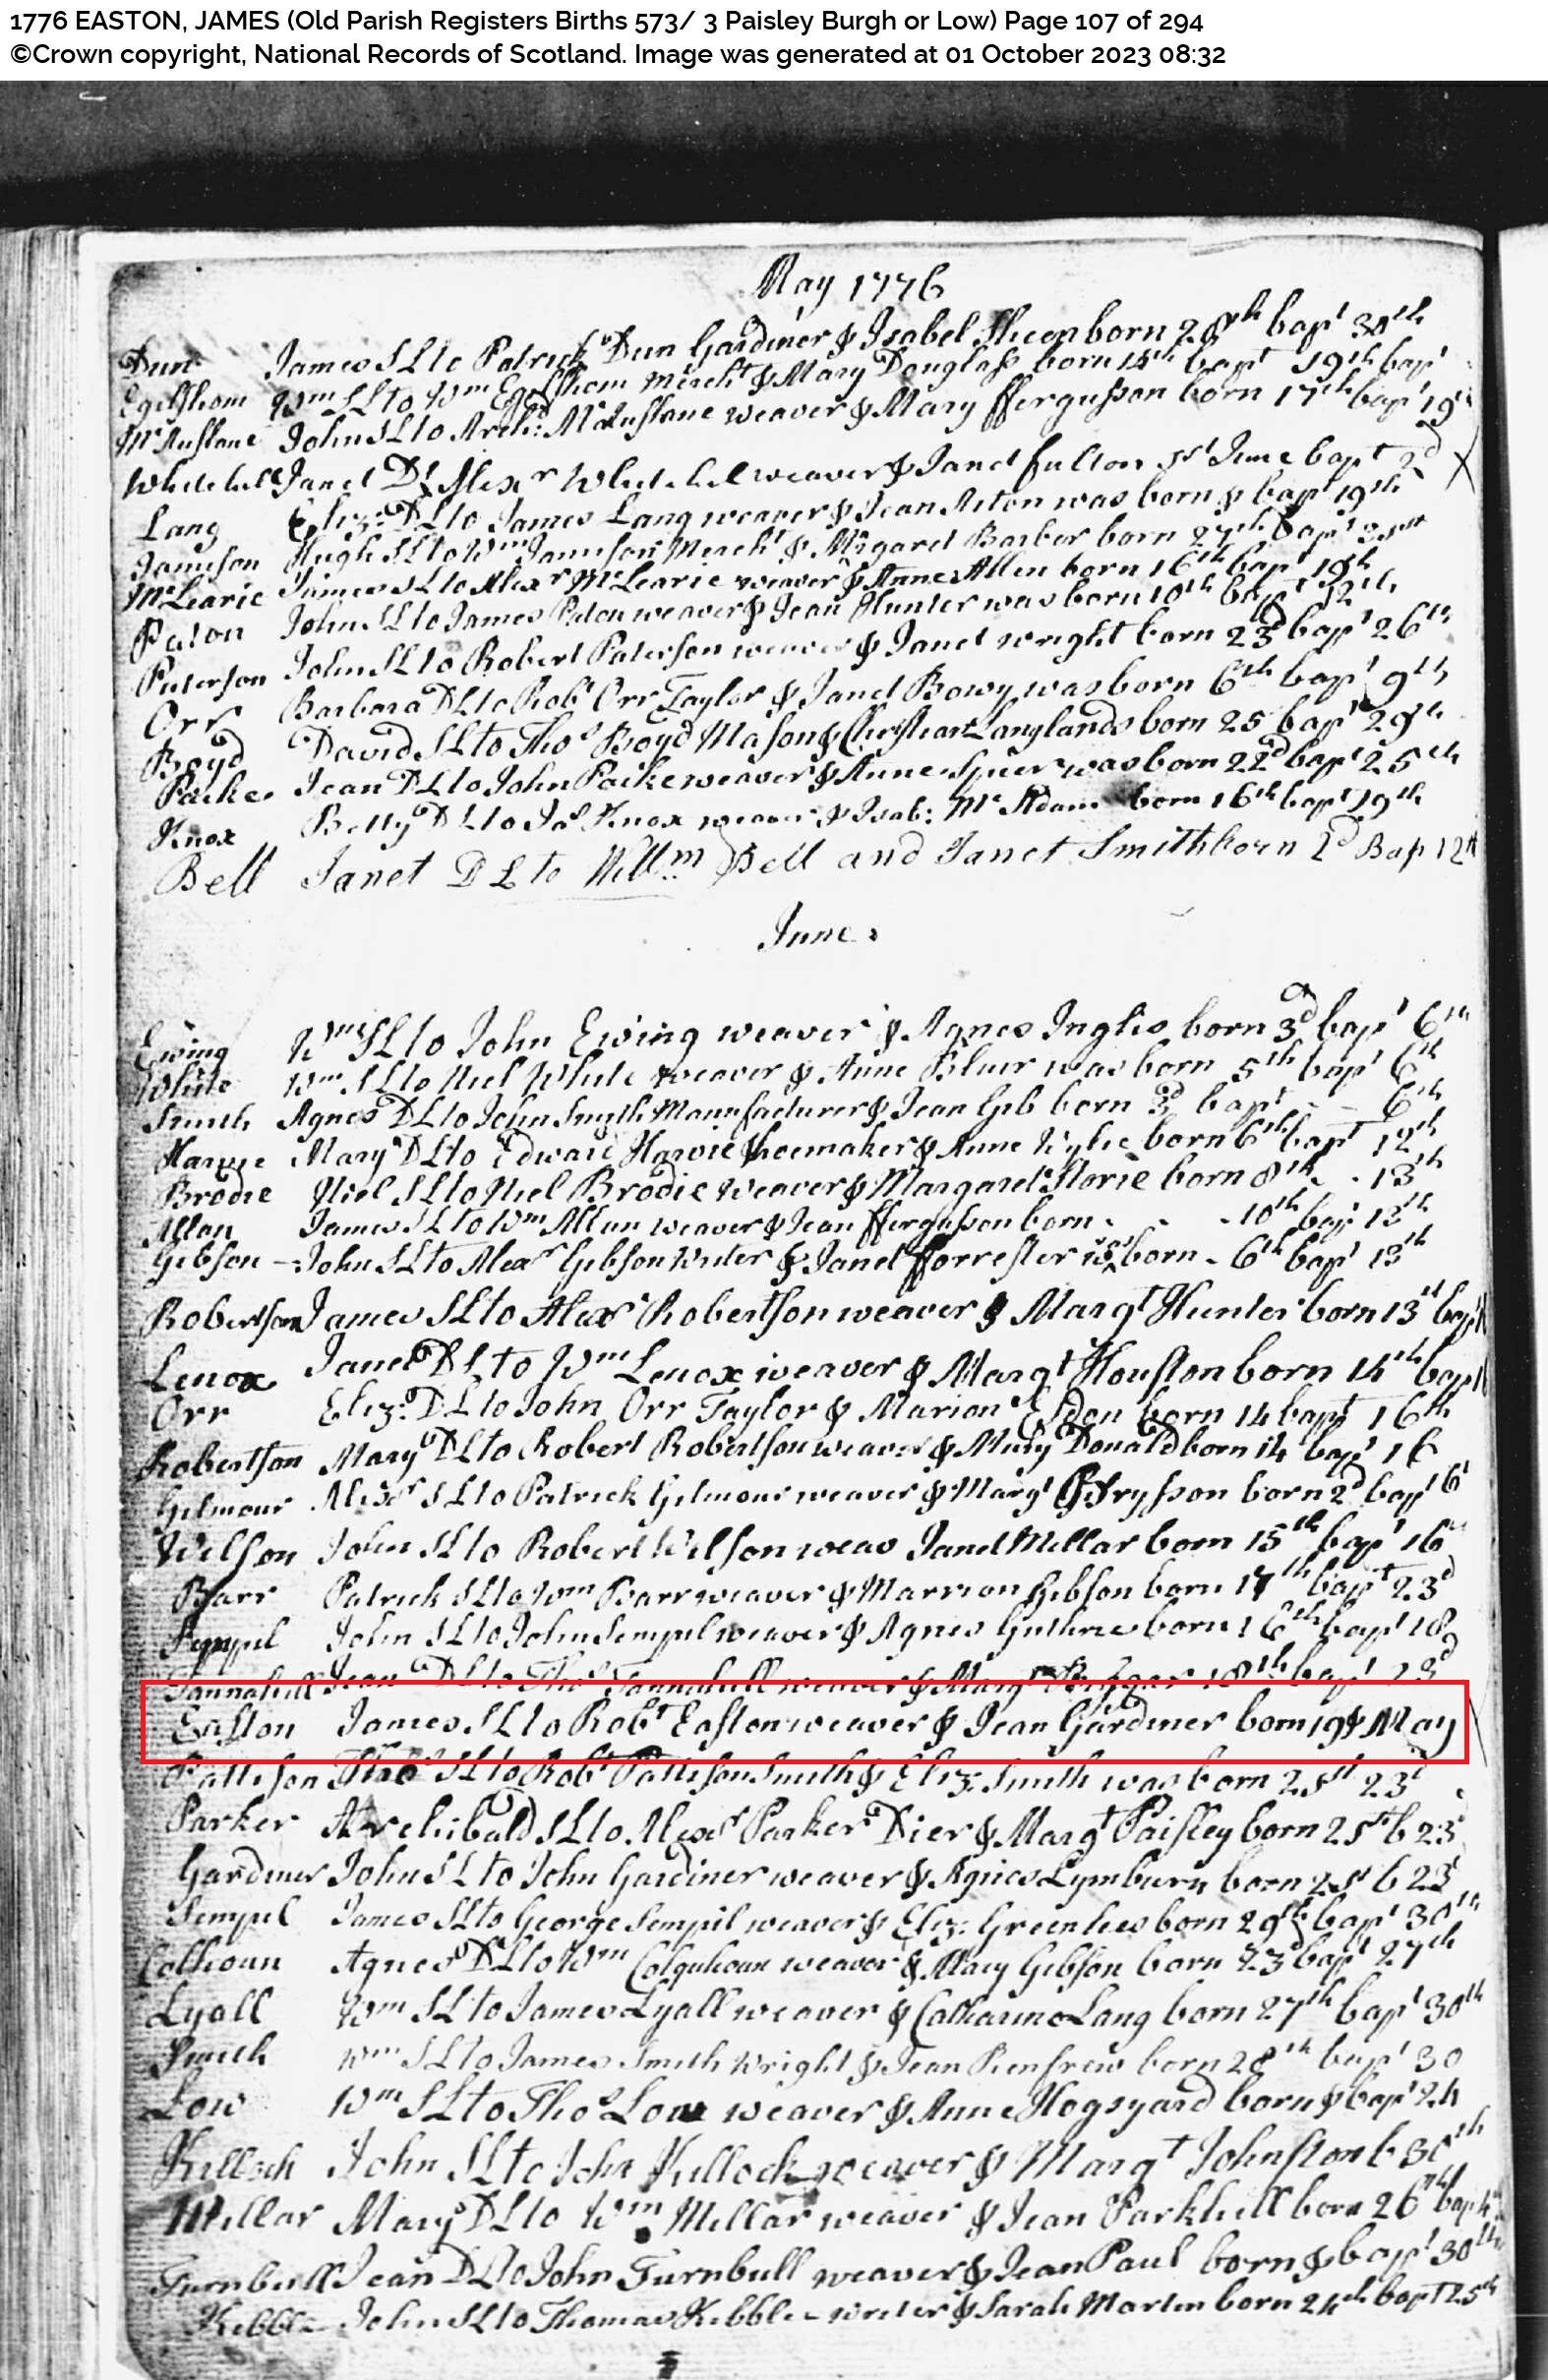 1776 EASTON, JAMES (Old Parish Registers Births 573/ 3 Paisley Burgh or Low) Page 107 of 294
©Crown copyright, National Records of Scotland. Image was generated at 01 October 2023 08:32
May 1776
Dun James S L to Patrick Dun Gardiner & Isabel born 28th bapt 30th
Egelshom Wm S L to Wm Egelshom Mercht & Mary Douglass born 14th bapt 19th bapt
McAuslane John S L to Archd: McAuslane weaver & Mary ffergusson born 17th bapt 19th
Whitehill Janet D L Alexr Whitehill weaver & Janet fulton 1st June bapt 2d
Lang Eliz: D L to James Lang weaver & Jean Aiton was born & bapt 19th
Jamison Hugh S L to Wm Jamison Mercht & Margaret Barber born 27th bapt 31st
McLearie James S L to Alexr McLearie weaver & Anne Allen born 16th bapt 19th
Paton John S L to James Paton weaver & Jean Hunter was born 10th bapt 12th
Paterson John S L to Robert Paterson weaver & Janet wright born 23d bapt 26th
Orr Barbara D L to Robt Orr Taylor & Janet Bowy was born 6th bapt 9th
Boyd David S L to Thos Boyd Mason & Langlands born 25 bapt 29th
Parke Jean D L to John Parke weaver & Anne Spier was born 22d bapt 25th
Knox Betty D L to Jas Knox weaver & Isab: McAdam born 16th bapt 19th
Bell Janet D L to Willm Bell and Janet Smith born 2d Bap 12th
June.
Ewing Wm S L to John Ewing weaver & Agnes Inglis born 3d bapt 6th
White Wm S L to Niel White weaver & Anne Blair was born 5th bapt 6th
Smith Agnes D L to John Smith Manufacturer & Jean Gib born 3d bapt - - 6th
Harvie Mary D L to Edward Harvie Shoemaker & Anne Wylie born 6th bapt 12th
Brodie Niel S L to Niel Brodie weaver & Margaret Storie born 8th . . 13th
Allan James S L to Wm Allan weaver & Jean ffergusson born . . . 10th bapt 13th
Gibson - John S L to Alexr Gibson Writer & Janet fforrester was born - 6th bapt 13th
Robertson James S L to Alexr Robertson weaver & Margt Hunter born 13th bapt
Lenox Janet D L to Wm Lenox weaver & Margt Houston born 14th bapt
Orr Eliz: D L to John Orr Taylor & Marion born 14 bapt 16th
Robertson Mary D L to Robert Robertson weaver & Mary Donald born 14 bapt 16
Gilmour Alexr S L to Patrick Gilmour weaver & Margt born 2d bapt 6t
Wilson John S L to Robert Wilson weav Janet Millar born 15th bapt 16th
Barr Patrick S L to Wm Barr weaver & Marrion Gibson born 17th bapt 23d
Sempil John S L to John Sempil weaver & Agnes Guthrie born 16th bapt 18
Tannahill Jean D L to Thos Tannahill weaver & Margt 18th bapt 23d
Easton James S L to Robt Easton weaver & Jean Gardiner born 19th May
Pattison Thos S L to Robt Pattison Smith & Eliz: Smith was born 21st 23d
Parker Archibald S L to Alexr Parker Dier & Margt Paisley born 21st b 23
Gardiner John S L to John Gardiner weaver & Agnes Lymburn born 21st b 23d
Sempil James S L to George Sempil weaver & Eliz: Greenlees born 29th bapt 30th
Colhoun Agnes D L to Wm Colquhoun weaver & Mary Gibson born 23d bapt 27th
Lyall Wm S L to James Lyall weaver & Catharine Lang born 27th bapt 30th
Smith Wm S L to James Smith Wright & Jean Renfrew born 28th bapt 30
Low Wm S L to Thos Low weaver & Anne Hogsyard born & bapt 24
Killoch John S L to John Killock weaver & Margt Johnston b 30th
Millar Mary D L to Wm Millar weaver & Jean Parkhill born 26th bapt
Turnbull Jean D L to John Turnbull weaver & Jean Paul born & bapt 30th
Kibble John S L to Thomas Kibble writer & Sarah Martin born 24th bapt 25th